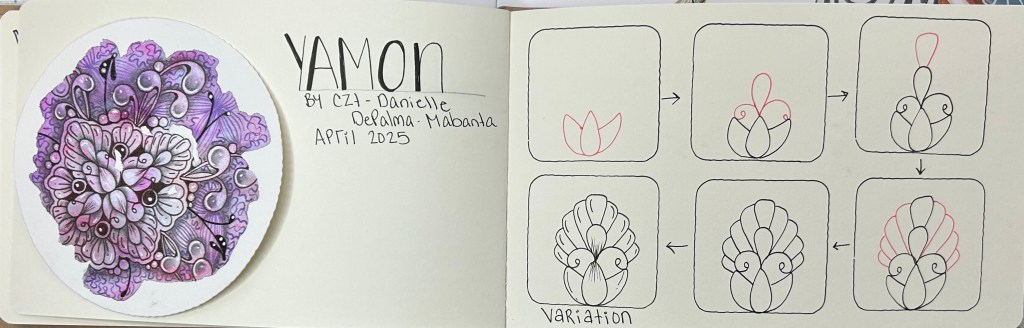 YAMON
BY CZT - Danielle
DePalma - Mabanta
April 2025
Variation